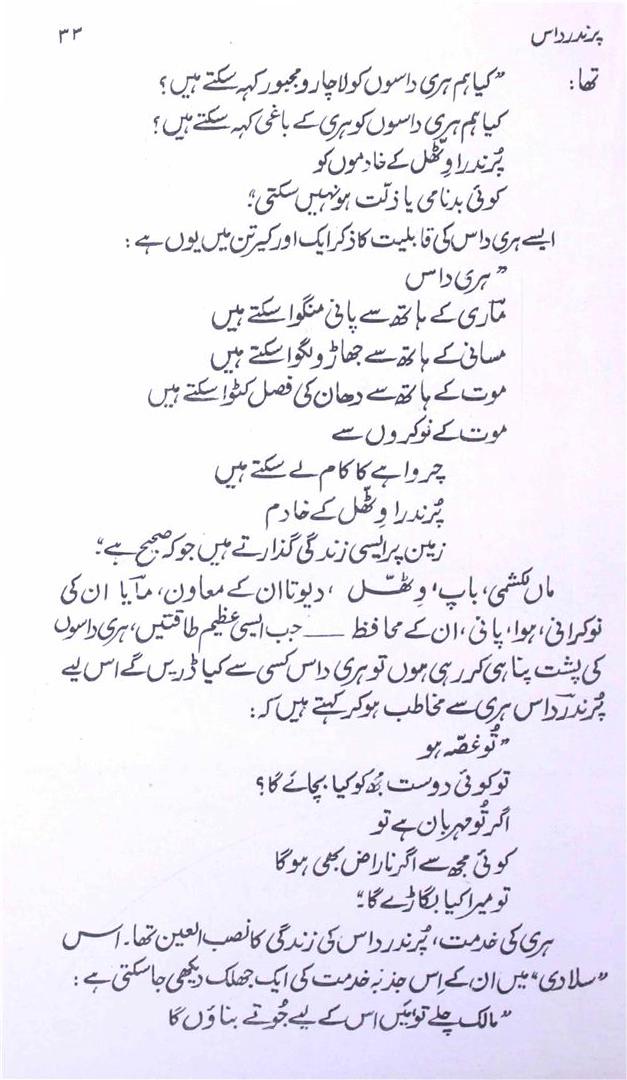 پرندرداس ۳۳
تھا: "کیا ہم ہری داسوں کو لاچار و مجبور کہہ سکتے ہیں؟
کیا ہم ہری داسوں کو ہری کے باغی کہہ سکتے ہیں؟
پُرندرا وِٹھّل کے خادموں کو
کوئی بدنامی یا ذلّت ہو نہیں سکتی"۔
ایسے ہری داس کی قابلیت کا ذکر ایک اور کیرتن میں یوں ہے:
"ہری داس
مآری کے ہاتھ سے پانی منگوا سکتے ہیں
مسانی کے ہاتھ سے جھاڑو لگوا سکتے ہیں
موت کے ہاتھ سے دھان کی فصل کٹوا سکتے ہیں
موت کے نوکروں سے
چرواہے کا کام لے سکتے ہیں
پُرندرا وِٹھّل کے خادم
زمین پر ایسی زندگی گذارتے ہیں جو کہ صحیح ہے"۔
ماں لکشمی، باپ، وِٹھّل، دیوتا ان کے معاون، مآیا ان کی
نوکرانی، ہوا، پانی، ان کے محافظ ــــ جب ایسی عظیم طاقتیں، ہری داسوں
کی پشت پناہی کر رہی ہوں تو ہری داس کسی سے کیا ڈریں گے اس لیے
پُرندرداس ہری سے مخاطب ہو کر کہتے ہیں کہ:
"تُو غصّہ ہو
تو کوئی دوست مجھ کو کیا بچائے گا؟
اگر تُو مہربان ہے تو
کوئی مجھ سے اگر ناراض بھی ہو گا
تو میرا کیا بگاڑے گا"۔
ہری کی خدمت، پُرندرداس کی زندگی کا نصب العین تھا۔ اس
"سلادی" میں ان کے اِس جذبۂ خدمت کی ایک جھلک دیکھی جا سکتی ہے:
"مالک چلے تو مَیں اس کے لیے جُوتے بناؤں گا